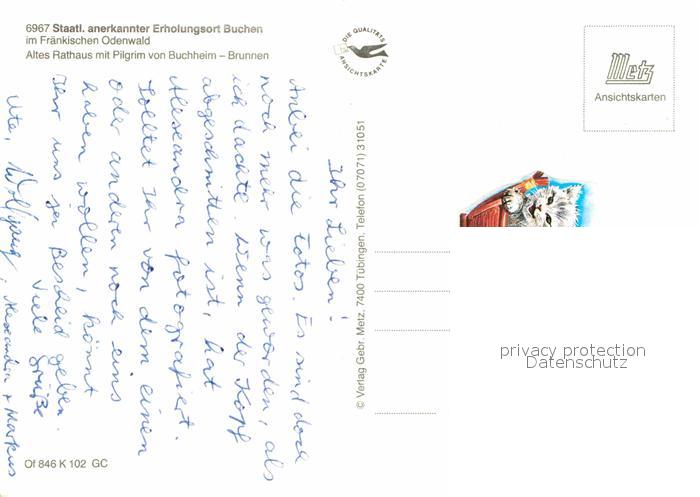 6967 Staatl. anerkannter Erholungsort Buchen
im Fränkischen Odenwald
Altes Rathaus mit Pilgrim von Buchheim – Brunnen
Ihr Lieben!
Anbei die Fotos. Es sind doch
noch mehr was geworden, als
ich dachte. Wenn der Kopf
abgeschnitten ist, hat
Alexandra fotografiert.
Solltet Ihr von dem einen
oder anderen noch eins
haben wollen, könnt
Ihr uns ja Bescheid geben.
Viele Grüße
Ute, Wolfgang, Alexandra + Markus
Of 846 K 102 GC
© Verlag Gebr. Metz, 7400 Tübingen, Telefon (07071) 31051
DIE QUALITÄTS
ANSICHTSKARTE
Metz
Ansichtskarten
privacy protection
Datenschutz